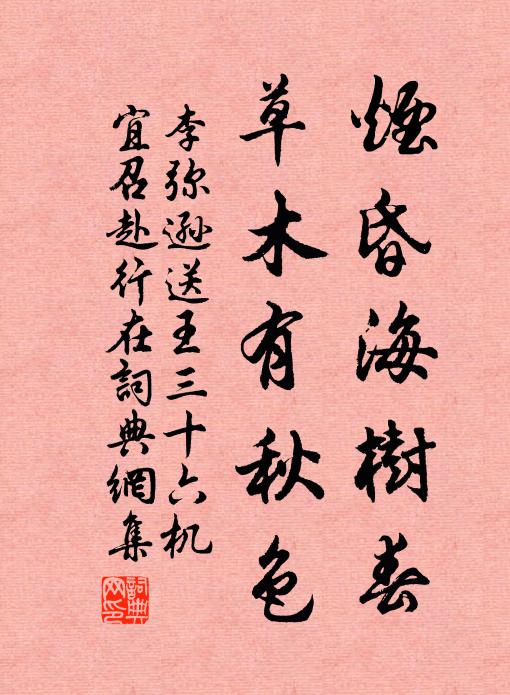 煙昏海樹春
草木有秋色
李弥遜送王三十六机
宜召赴行在詞典網集
詞典
網印